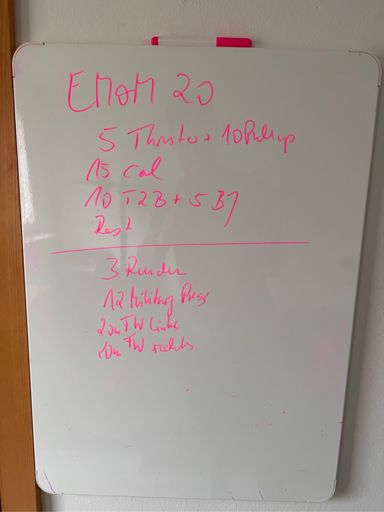 EMOM 20
5 Thruster + 10 Pullup
15 Cal
10 T2B + 5 BJ
Rest
3 Runden
12 Military Press
20m FW links
20m FW rechts